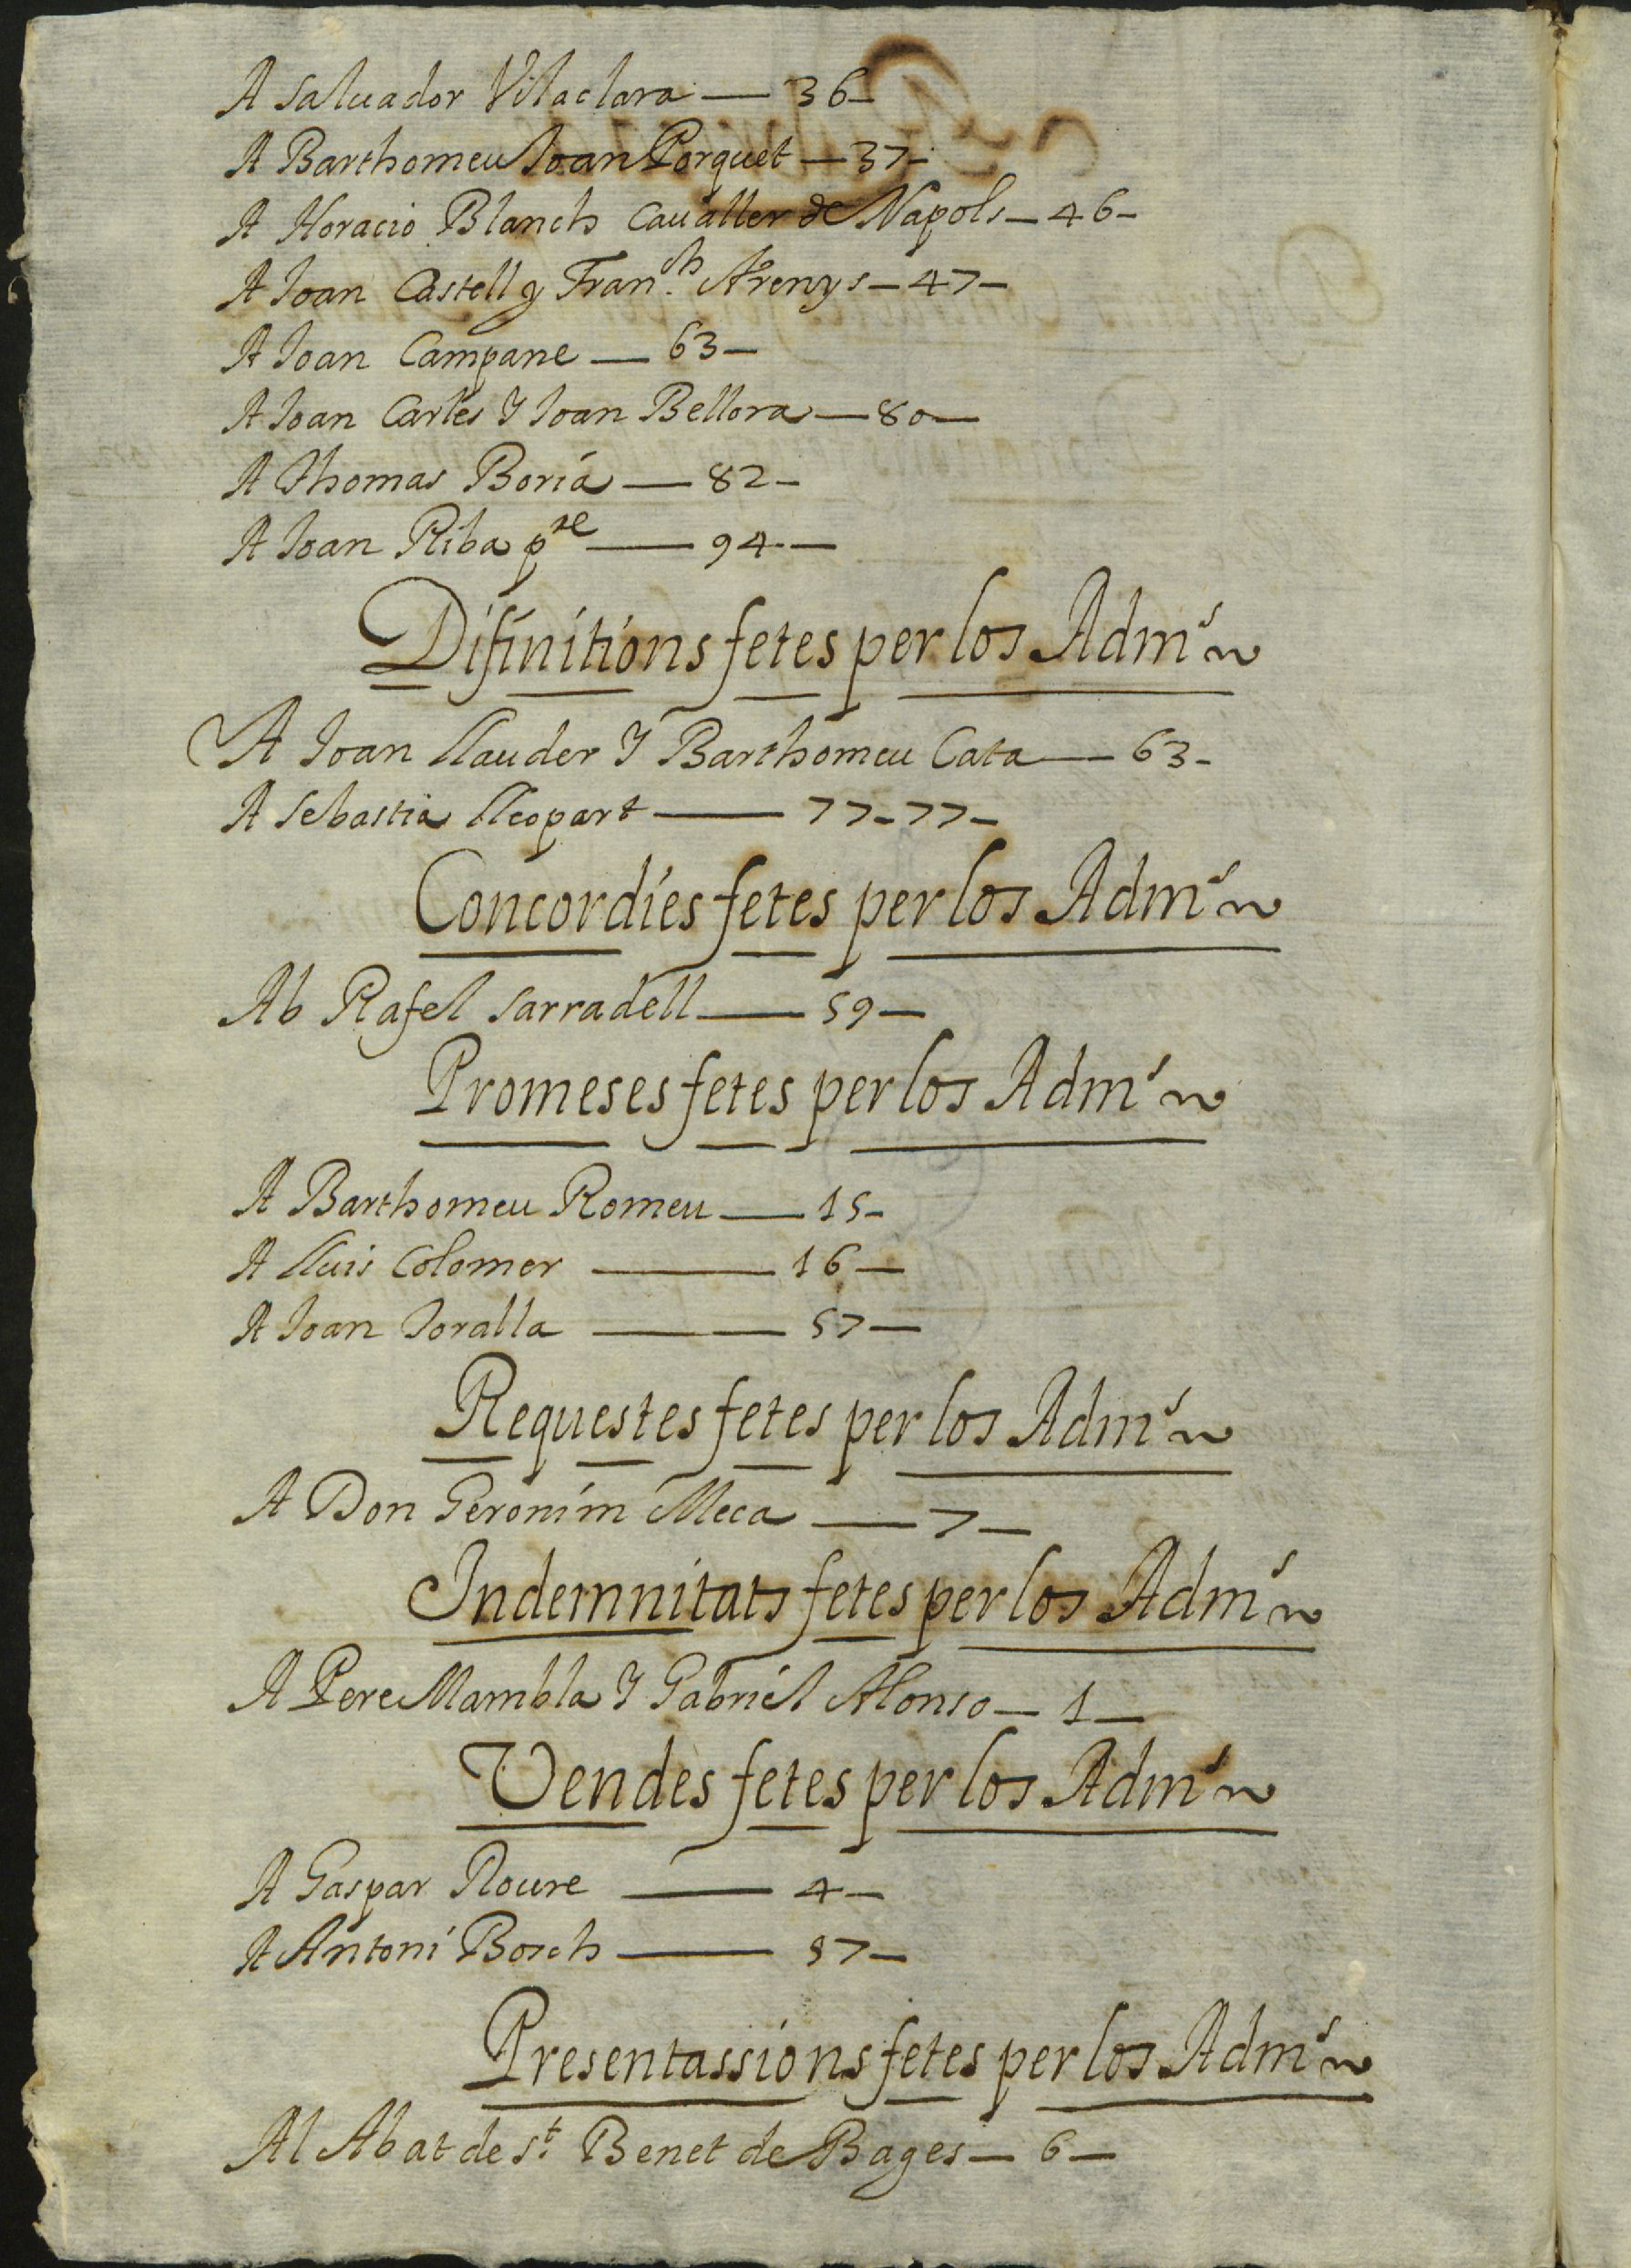 A Saluador Vilaclara — 36 —
A Barthomeu Joan Porquet — 37 —
A Horacio Blanch Caualler de Napols — 46 —
A Joan Castell y Fran.ch Arenys — 47 —
A Joan Campane — 63 —
A Joan Carles Y Joan Bellora — 80 —
A Thomas Boria — 82 —
A Joan Riba pre — 94 —
Difinitions fetes per los Adm.s
A Joan Llauder Y Barthomeu Cata — 63 —
A Sebastia Lleopart — 77 — 77 —
Concordies fetes per los Adm.s
Ab Rafel Sarradell — 59 —
Promeses fetes per los Adm.s
A Barthomeu Romeu — 15 —
A Lluis Colomer — 16 —
A Joan Joralla — 57 —
Requestes fetes per los Adm.s
A Don Geronim Meca — 7 —
Indemnitats fetes per los Adm.s
A Pere Mambla Y Gabriel Alonso — 1 —
Vendes fetes per los Adm.s
A Gaspar Roure — 4 —
A Antoni Bosch — 57 —
Presentassions fetes per los Adm.s
Al Abat de St. Benet de Bages — 6 —